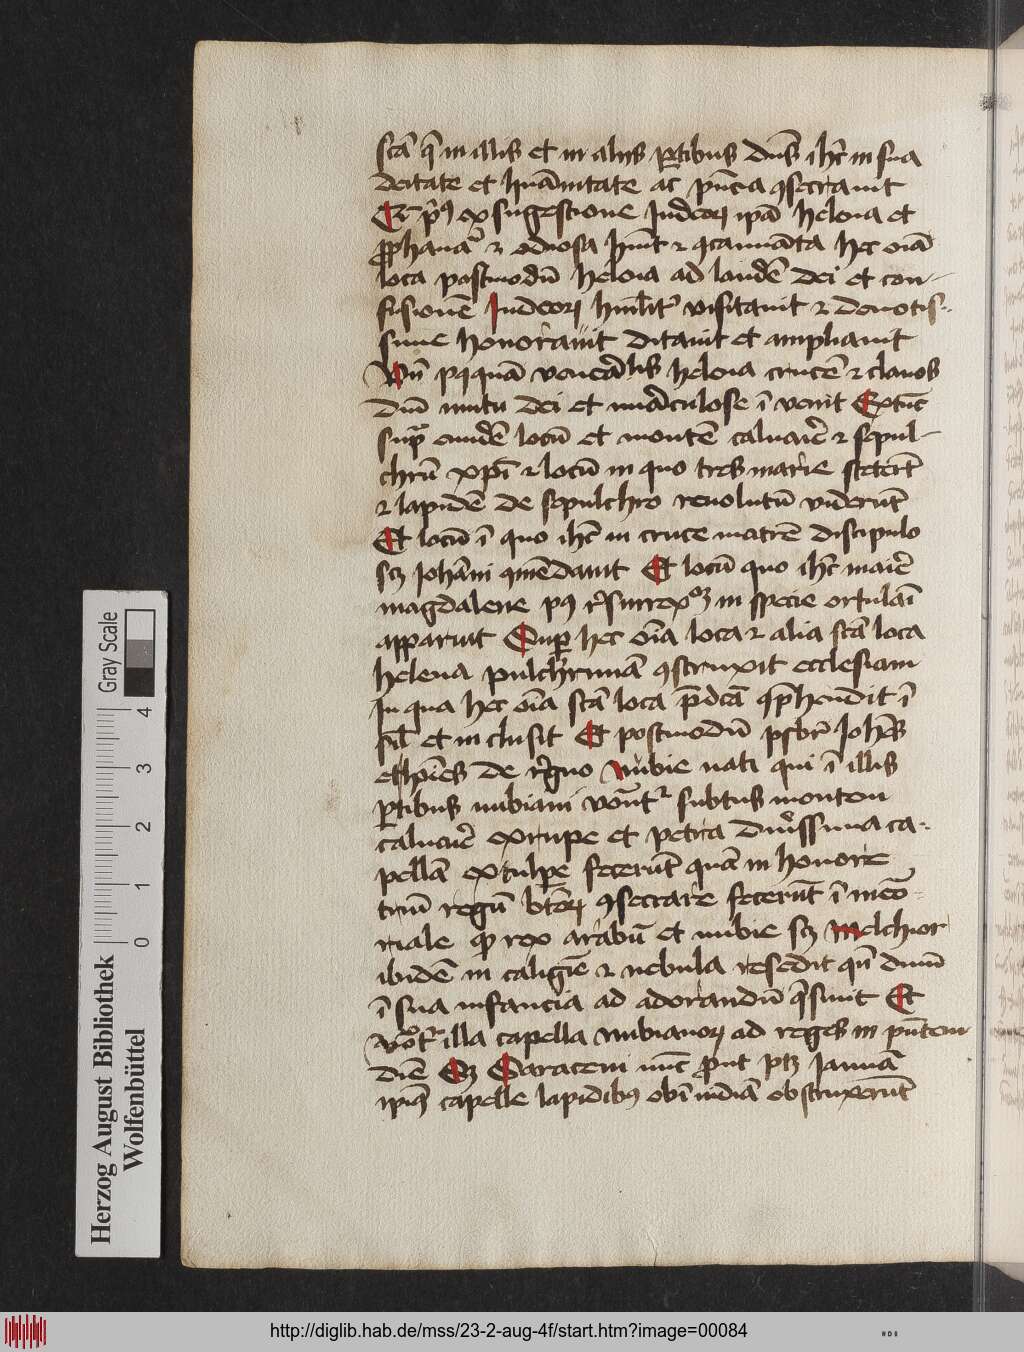 sctā q̄ in illis et in alijs ꝑtibus dn̄s ihc̄ in sua
deitate et hūanitate ac pn̄cia ꝯsecrauit
Et pꝰ ex sugestione Judeoꝝ ipā helena et
ꝓphana ⁊ odiosa hūit ⁊ hec oīa
loca postmodū helena ad laudē dei et con-
fusionē Judeoꝝ hūilit᷑ visitauit ⁊ deuotis-
sime honorauit ditauit et ampliauit
Vn̄ pꝯquā ven̄abilis helena crucē ⁊ clauos
dnī nutu dei et miaculose īvenit Extūc
sup̄ eundē locū et montē caluarie ⁊ sepul-
chrū xp̄i ⁊ locū in quo tres marie stetert̄
⁊ lapidē de sepulchro reuolutū viderūt
Et locū ī quo ihc̄ in cruce matrē discipulo
scꝫ Johāni ꝯmēdauit Et locū quo ihc̄ marie
magdalene pꝰ in specie ortulāi
apparuit Suꝑ hec oīa loca ⁊ alia sctā loca
helena pulchrimā ꝯstruxit ecclesiam
In qua hec oīa sctā loca p̄dc̄a ꝯp̄hendit ī
sil̄ et inclusit Et postmodū psbr̄i Joh̄es
et hoīes de regno nubie nati qui ī illis
ꝑtibus nubiani vocant᷑ subtus montem
caluarie ex rupe et petra durissima ca-
pellā exculpe fecerūt quā in honore
triū regū btōꝝ ꝯsecrare fecerūt ī meō-
riale ꝙ rex arabū et nubie scꝫ Melchior
ibidē in caligīe ⁊ nebula resedit qn̄ dnm̄
ī sua infancia ad adorandū q̄siuit Et
vocat᷑ illa capella nubianoꝝ ad reges in pn̄tem
diē Sꝫ Saraceni nūc prout ptꝫ Januā
ipiꝰ capelle lapidibꝯ ob īuidiā obstruxerūt
Herzog August Bibliothek
Wolfenbüttel
Gray Scale
0 1 2 3 4
http://diglib.hab.de/mss/23-2-aug-4f/start.htm?image=00084